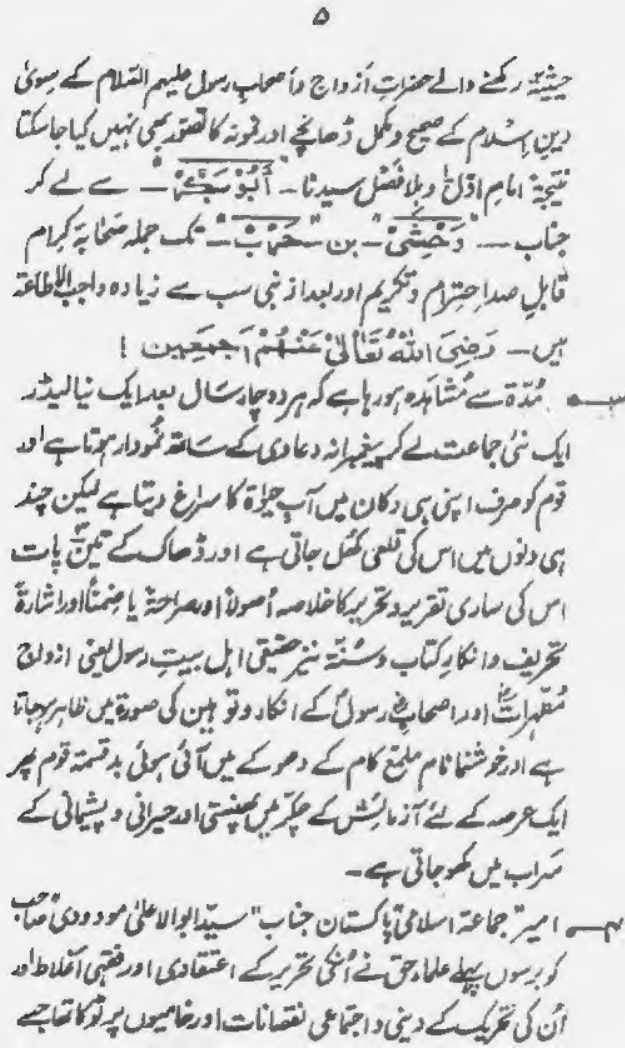 ۵
حیثیۃ رکھنے والے حضراتِ اَزواج واَصحابِ رسول علیہم السّلام کے سِویٰ
دینِ اِسْلام کے صحیح ومکمل ڈھانچے اور نمونہ کا تصوّر بھی نہیں کیا جا سکتا
نتیجۃً امامِ اوّلؓ وبِلافَصْل سیدنا ــ "اَبُوْ بَکْرْ" ــ سے لے کر
جناب ــ "وَحْشِیْ" ــ بن ــ "حَرْبْ" ــ تک جملہ صَحَابَہ کِرام
قابلِ صد اِحتِرام و تکریم اور بعد از نبی سب سے زیادہ واجب الاطاعۃ
ہیں ــ رَضِیَ اللّٰہُ تَعَالٰی عَنْہُمْ اَجمَعِین !
۳ــ مُدّۃ سے مُشاہَدہ ہو رہا ہے کہ ہر دو چار سَال بعد ایک نیا لیڈر
ایک نئی جماعت لے کر پیغمبرانہ دعاوی کے ساتھ نُمودار ہوتا ہے اور
قوم کو صرف اپنی ہی دکان میں آبِ حیٰوۃ کا سراغ دیتا ہے لیکن چند
ہی دنوں میں اس کی قلعی کھُل جاتی ہے اور ڈھاک کے تین پات
اس کی ساری تقریر و تحریر کا خلاصہ اُصولاً اور صراحۃً یا ضِمناً اور اشارۃً
تحریف و انکارِ کتاب و سُنّۃ نیز حقیقی اہل بیتِ رسول یعنی ازواجِ
مُطہراتؓ اور اصحابِؓ رسولؐ کے انکار و توہین کی صورۃ میں ظاہر ہو جاتا
ہے اور خوشنما نام ملمع کام کے دھوکے میں آئی ہوئی بد قسمۃ قوم پھر
ایک عرصہ کے لئے آزمائِش کے چکّر میں پھنستی اور حیرانی و پشیمانی کے
سَراب میں کھو جاتی ہے ــ
۴ــ امیرِ جماعۃ اسلامی پاکستان جناب "سیّد ابوالاعلیٰ مودودی صَاحِب
کو برسوں پہلے علماءِ حق نے اُنکی تحریر کے اعتقادی اور فقہی اَغلاط اور
اُن کی تحریک کے دینی و اجتماعی نقصانات اور خامیوں پر ٹوکا تھا جسے